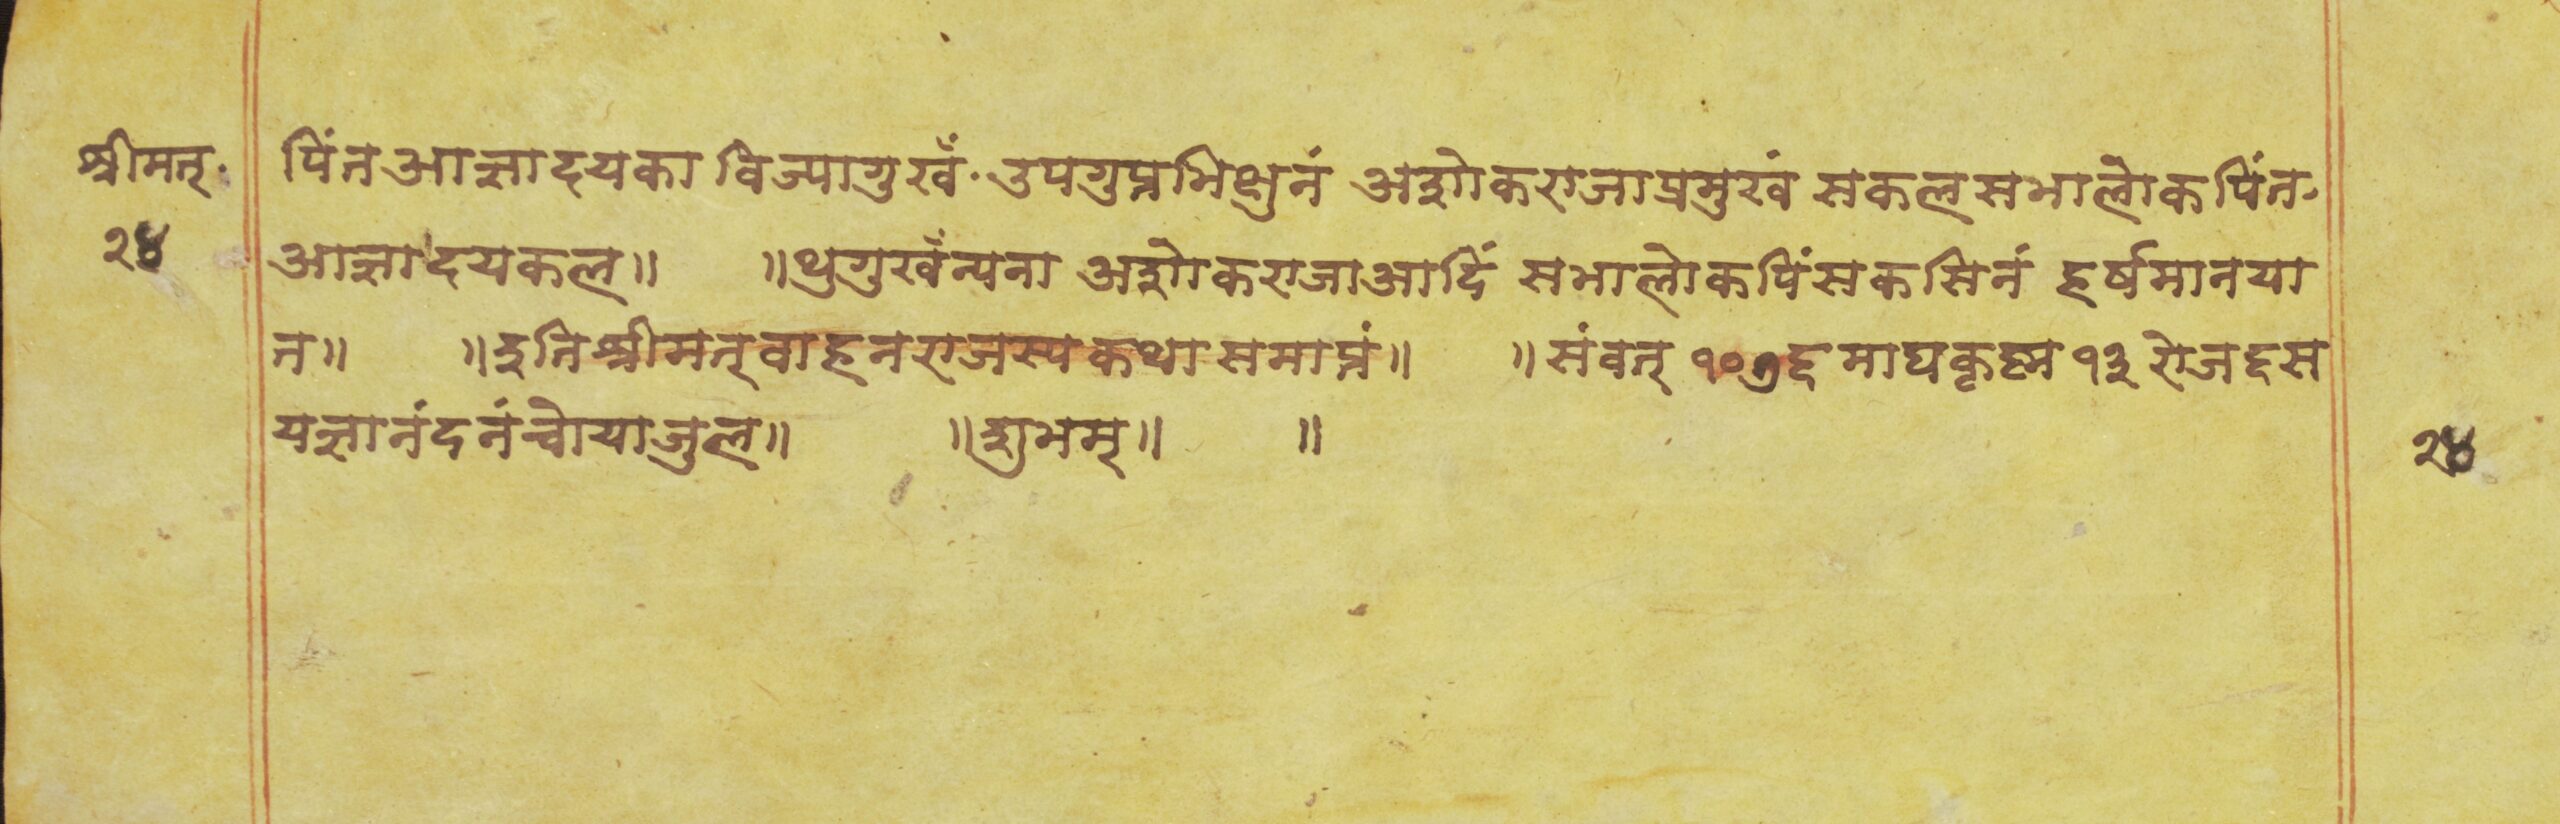 श्रीमत्· पिंत आज्ञादयका विज्यागुखँ· उपगुप्तभिक्षुनं अशोकराजाप्रमुखं सकलसभालोकपिंत·
२४ आज्ञादयकल॥ ॥थुगुखँन्यना अशोकराजाआदिं सभालोकपिंसकसिनं हर्षमानया
त॥ ॥इतिश्रीमत्वाहनराजस्यकथासमाप्तं॥ ॥संवत् १०७६ माघकृष्ण १३ रोज६स
यज्ञानंदनंच्वोयाजुल॥ ॥शुभम्॥ ॥
२४